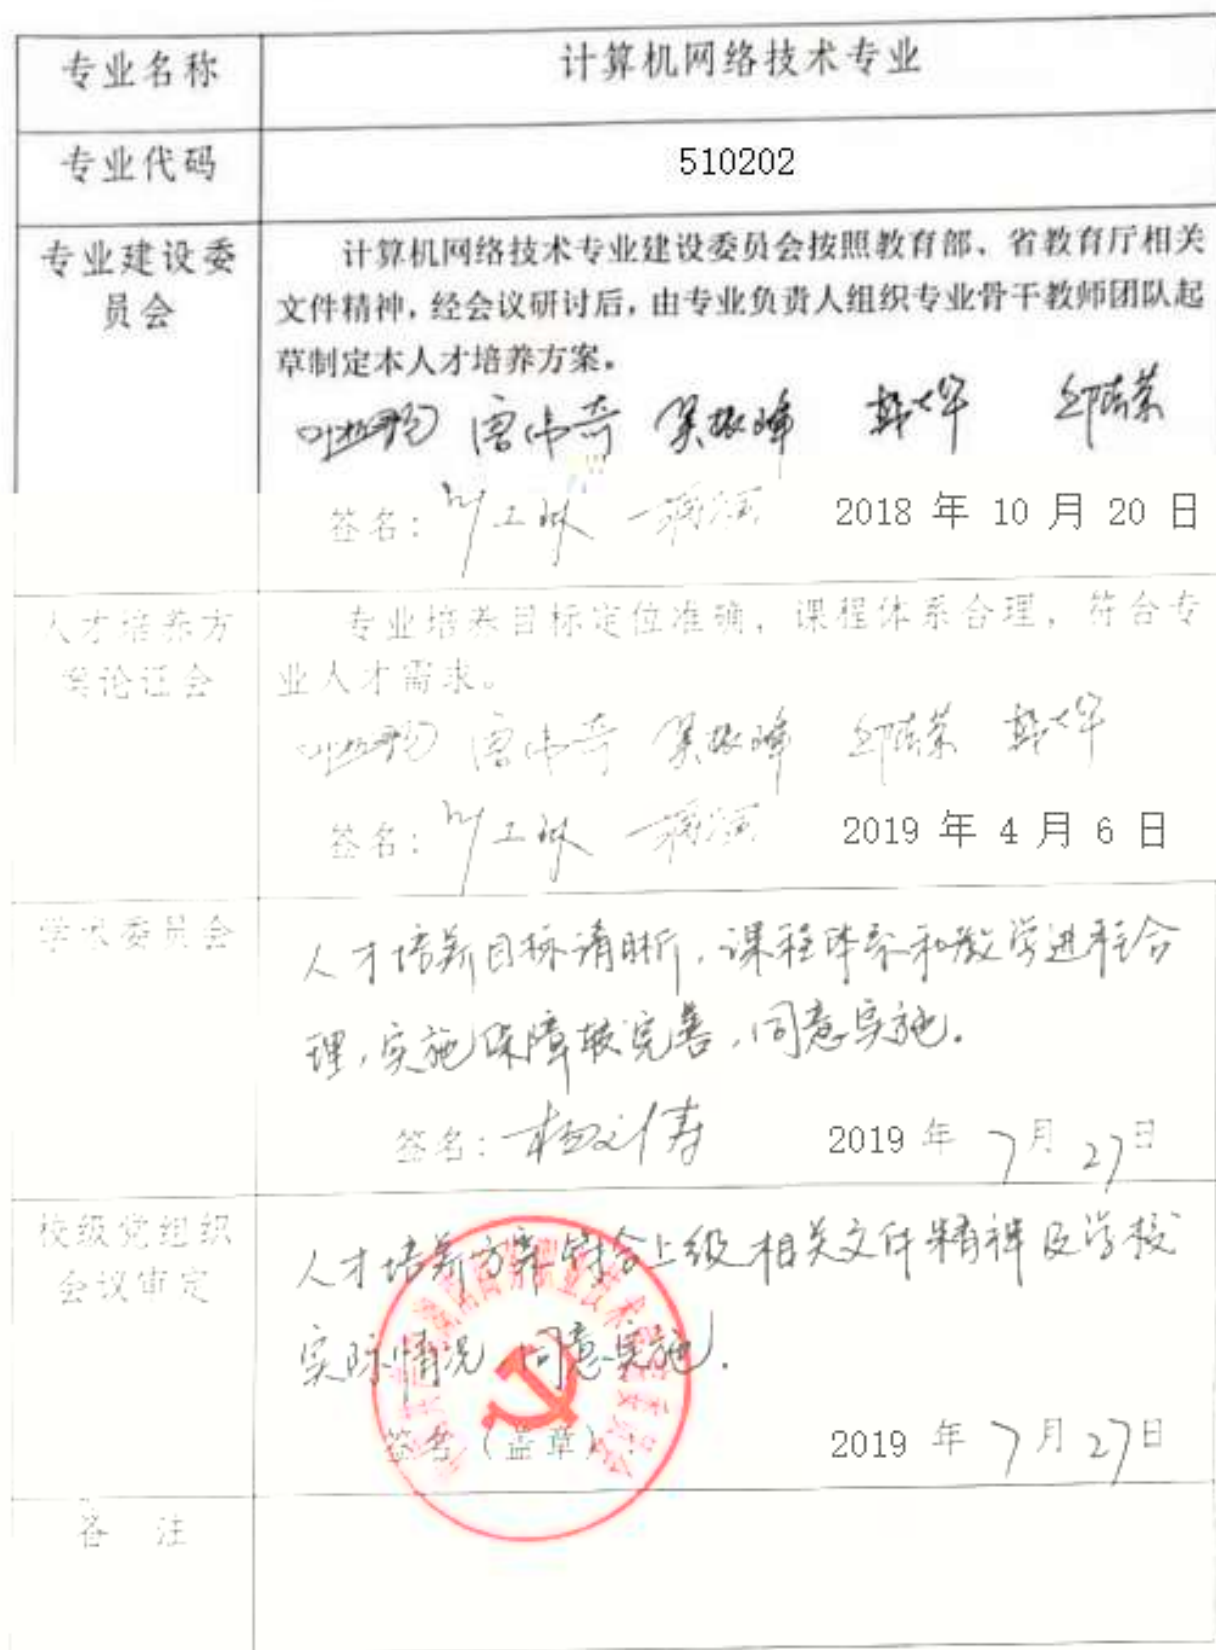 专业名称
计算机网络技术专业
专业代码
510202
专业建设委
员会
计算机网络技术专业建设委员会按照教育部、省教育厅相关
文件精神，经会议研讨后，由专业负责人组织专业骨干教师团队起
草制定本人才培养方案。
签名： 2018 年 10 月 20 日
人才培养方
案论证会
专业培养目标定位准确，课程体系合理，符合专
业人才需求。
签名： 2019 年 4 月 6 日
学术委员会
人才培养目标清晰，课程体系和教学进程合
理，实施保障较完善，同意实施。
签名： 2019 年 7 月 27 日
校级党组织
会议审定
人才培养方案符合上级相关文件精神及学校
实际情况，同意实施.
签名（盖章）： 2019 年 7 月 27 日
备 注